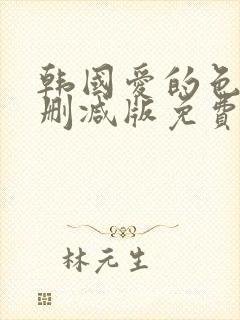 韩國爱的色
删减版免費
林元生